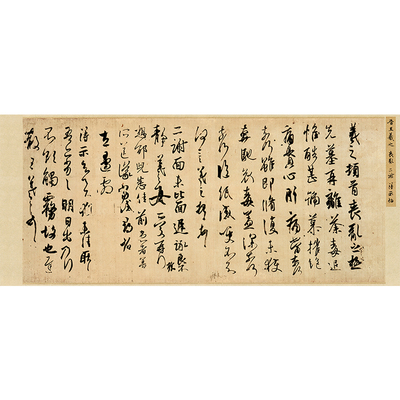 晉王羲之 喪亂 二謝 得示帖
羲之頓首喪亂之極
先墓再離荼毒追
惟酷甚號慕摧絕
痛貫心肝痛當奈何
奈何雖即脩復未獲
奔馳哀毒益深奈何
奈何臨紙感哽不知
何言羲之頓首頓首
二謝面未比面遲詠良不
靜羲之女愛再拜
想邵兒悉佳前患者善
所送議當試尋省
左邊劇
得示知足下猶未佳耿
耿吾亦劣劣明日出乃行
不欲觸霧故也遲
散王羲之頓首